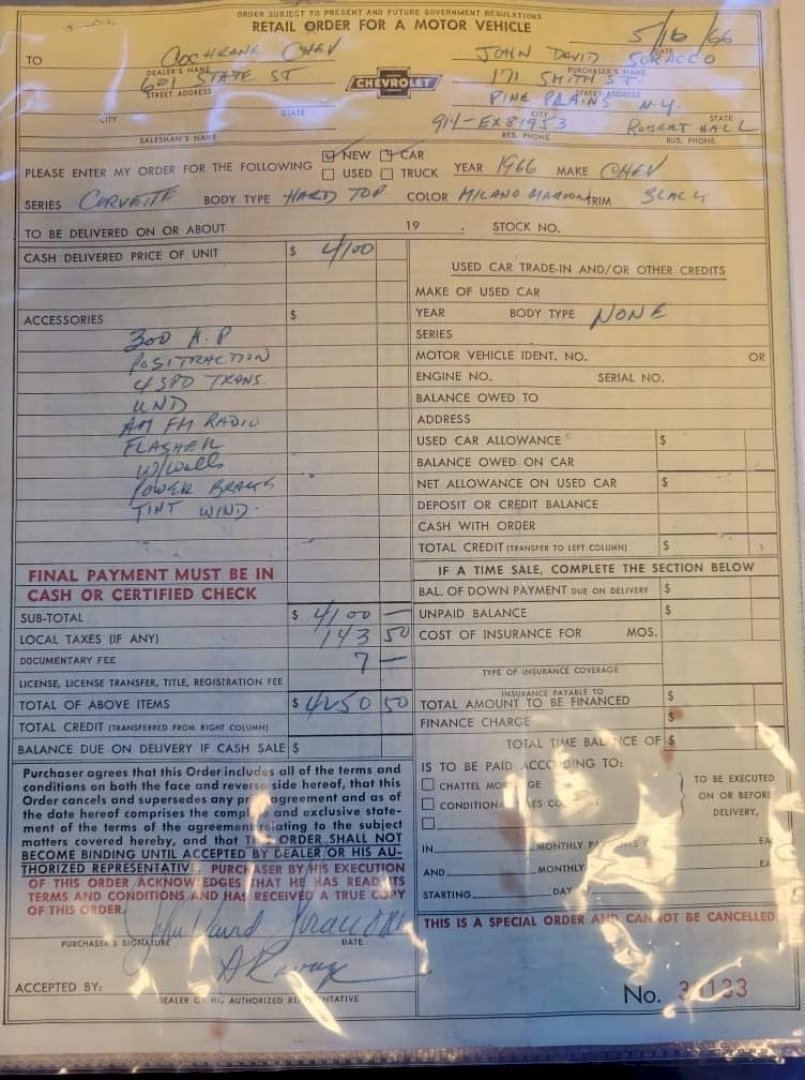 ORDER SUBJECT TO PRESENT AND FUTURE GOVERNMENT REGULATIONS
RETAIL ORDER FOR A MOTOR VEHICLE
5/16/66
DATE
TO COCHRANE CHEV
DEALER'S NAME
601 STATE ST
STREET ADDRESS
CITY STATE
SALESMAN'S NAME
CHEVROLET
JOHN DAVID SORACCO
PURCHASER'S NAME
171 SMITH ST.
STREET ADDRESS
PINE PLAINS N.Y.
CITY STATE
914-EX81953 ROBERT HALL
RES. PHONE BUS. PHONE
PLEASE ENTER MY ORDER FOR THE FOLLOWING NEW CAR YEAR 1966 MAKE CHEV
USED TRUCK
SERIES CORVETTE BODY TYPE HARD TOP COLOR MILANO MAROON TRIM BLACK
TO BE DELIVERED ON OR ABOUT 19 . STOCK NO.
CASH DELIVERED PRICE OF UNIT $ 4100
ACCESSORIES $
300 H.P
POSITRACTION
4 SPD TRANS.
UND
AM FM RADIO
FLASHER
W/Walls
POWER BRAKES
TINT WIND.
FINAL PAYMENT MUST BE IN
CASH OR CERTIFIED CHECK
SUB-TOTAL $ 4100 —
LOCAL TAXES (IF ANY) 143 50
DOCUMENTARY FEE 7 —
LICENSE, LICENSE TRANSFER, TITLE, REGISTRATION FEE
TOTAL OF ABOVE ITEMS $ 4250 50
TOTAL CREDIT (TRANSFERRED FROM RIGHT COLUMN)
BALANCE DUE ON DELIVERY IF CASH SALE $
USED CAR TRADE-IN AND/OR OTHER CREDITS
MAKE OF USED CAR
YEAR BODY TYPE NONE
SERIES
MOTOR VEHICLE IDENT. NO. OR
ENGINE NO. SERIAL NO.
BALANCE OWED TO
ADDRESS
USED CAR ALLOWANCE $
BALANCE OWED ON CAR
NET ALLOWANCE ON USED CAR $
DEPOSIT OR CREDIT BALANCE
CASH WITH ORDER
TOTAL CREDIT (TRANSFER TO LEFT COLUMN) $
IF A TIME SALE, COMPLETE THE SECTION BELOW
BAL. OF DOWN PAYMENT DUE ON DELIVERY $
UNPAID BALANCE $
COST OF INSURANCE FOR MOS.
TYPE OF INSURANCE COVERAGE
INSURANCE PAYABLE TO
TOTAL AMOUNT TO BE FINANCED $
FINANCE CHARGE $
TOTAL TIME BALANCE OF $
IS TO BE PAID ACCORDING TO:
CHATTEL MORTGAGE
CONDITIONAL SALES CONTRACT
TO BE EXECUTED
ON OR BEFORE
DELIVERY,
IN MONTHLY PAYMENTS EA
AND MONTHLY EA
STARTING DAY
THIS IS A SPECIAL ORDER AND CANNOT BE CANCELLED
Purchaser agrees that this Order includes all of the terms and
conditions on both the face and reverse side hereof, that this
Order cancels and supersedes any prior agreement and as of
the date hereof comprises the complete and exclusive state-
ment of the terms of the agreement relating to the subject
matters covered hereby, and that THE ORDER SHALL NOT
BECOME BINDING UNTIL ACCEPTED BY DEALER OR HIS AU-
THORIZED REPRESENTATIVE. PURCHASER BY HIS EXECUTION
OF THIS ORDER ACKNOWLEDGES THAT HE HAS READ ITS
TERMS AND CONDITIONS AND HAS RECEIVED A TRUE COPY
OF THIS ORDER.
John David Soracco
PURCHASER'S SIGNATURE DATE
ACCEPTED BY:
DEALER OR HIS AUTHORIZED REPRESENTATIVE
No.